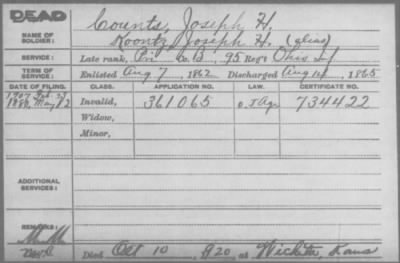 DEAD
NAME OF SOLDIER: Counts, Joseph H.
Koontz, Joseph H. (alias)
SERVICE: Late rank, Pri Co. B, 95 Reg't Ohio Inf
TERM OF SERVICE: Enlisted Aug 7, 1862 Discharged Aug 14, 1865
DATE OF FILING. CLASS. APPLICATION NO. LAW. CERTIFICATE NO.
1907 Feb. 23
1880, May 12 Invalid, 361065 734422
Widow,
Minor,
ADDITIONAL SERVICES:
REMARKS:
Died Oct 10, 1920, at Wichita, Kans